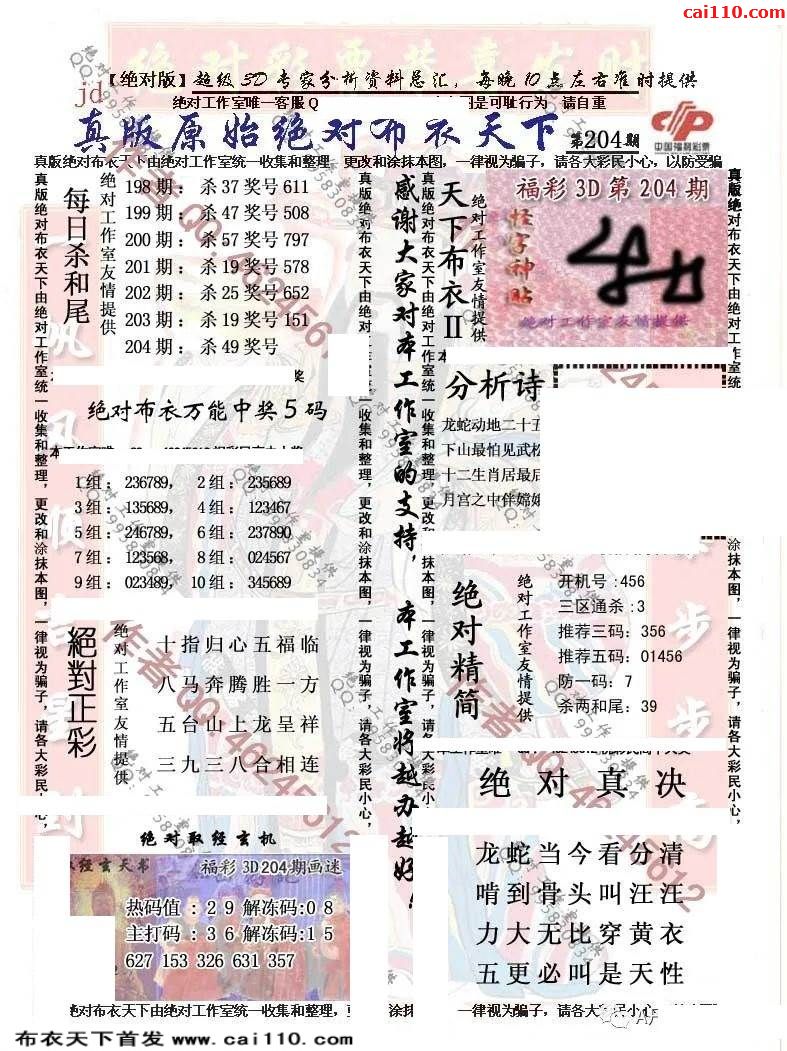 cai110.com
【绝对版】超级3D专家分析资料总汇，每晚10点左右准时提供
jd
绝对工作室唯一客服Q
是可耻行为 请自重
真版原始绝对布衣天下
第204期
中国福利彩票
真版绝对布衣天下由绝对工作室统一收集和整理，更改和涂抹本图，一律视为骗子，请各大彩民小心，以防受骗
真版绝对布衣天下由绝对工作室统一收集和整理，更改和涂抹本图，一律视为骗子，请各大彩民小心，
每日杀和尾
绝对工作室友情提供
198期：杀37奖号611
199期：杀47奖号508
200期：杀57奖号797
201期：杀19奖号578
202期：杀25奖号652
203期：杀19奖号151
204期：杀49奖号
绝对布衣万能中奖5码
1组：236789， 2组：235689
3组：135689， 4组：123467
5组：246789， 6组：237890
7组：123568， 8组：024567
9组：023489， 10组：345689
絕對正彩
绝对工作室友情提供
十指归心五福临
八马奔腾胜一方
五台山上龙呈祥
三九三八合相连
绝对取经玄机
取经玄天书
福彩3D204期画迷
热码值：29解冻码:08
主打码：36解冻码:15
627 153 326 631 357
真版绝对布衣天下由绝对工作室统一收集和整理，更改和涂抹本图，一律视为骗子，请各大彩民小心，
感谢大家对本工作室的支持，本工作室将越办越好！
真版绝对布衣天下由绝对工作室统一收集和整理，更改和涂抹本图，一律视为骗子，请各大彩民小心，
天下布衣II
绝对工作室友情提供
福彩3D第204期
怪字神贴
绝对工作室友情提供
分析诗
龙蛇动地二十五
下山最怕见武松
十二生肖居最后
月宫之中伴嫦娥
绝对精简
绝对工作室友情提供
开机号:456
三区通杀:3
推荐三码:356
推荐五码:01456
防一码:7
杀两和尾:39
绝对真决
龙蛇当今看分清
啃到骨头叫汪汪
力大无比穿黄衣
五更必叫是天性
真版绝对布衣天下由绝对工作室统一收集和整理，更改和涂抹本图，一律视为骗子，请各大彩民小心，
绝对布衣天下由绝对工作室统一收集和整理，更
涂抹本图，
一律视为骗子，请各大彩民小心
布衣天下首发 www.cai110.com